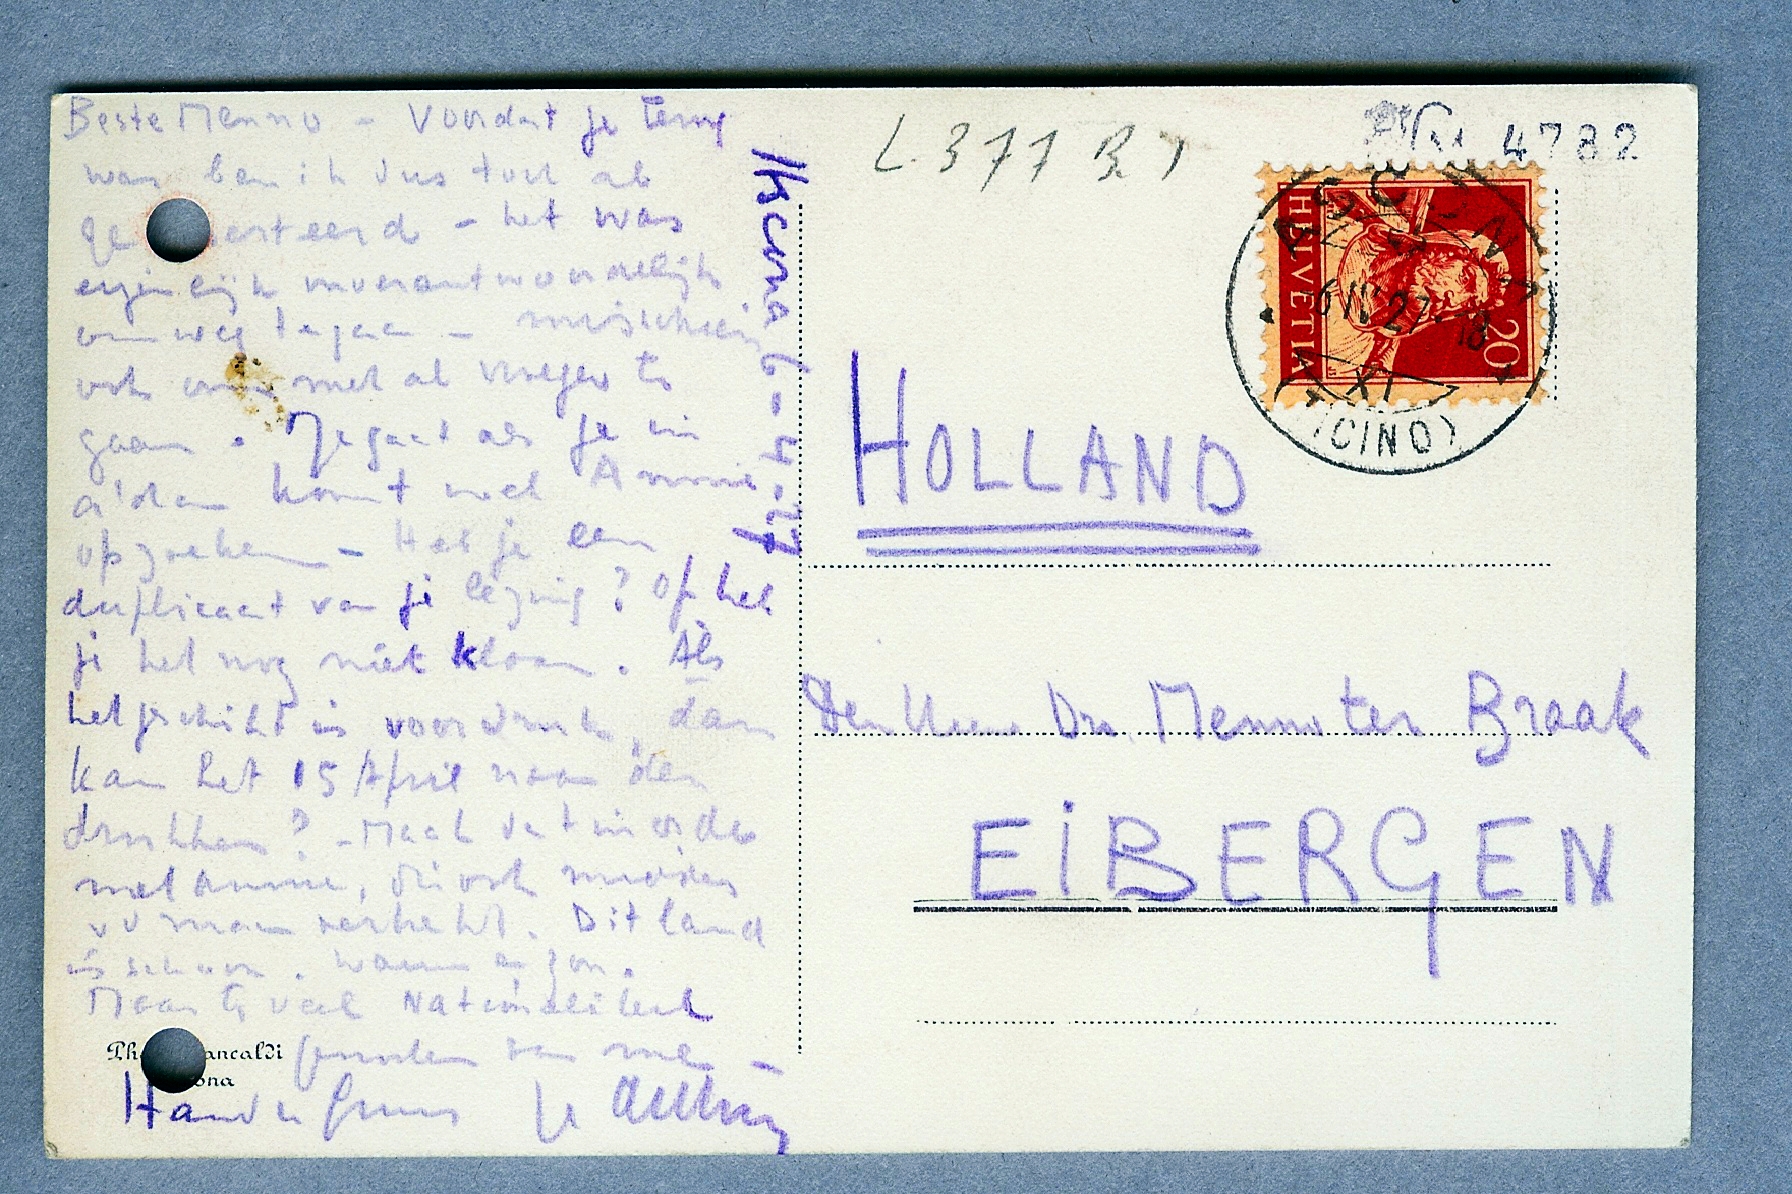 Beste Menno – Voordat je terug
was ben ik dus toch al
ge erteerd – het was
eigenlijk onverantwoordelijk
om weg te gaan – misschien
ook om met al vroeger te
gaan. Je gaat als je in
a'dam komt wel Annie
opzoeken – Heb je een
duplicaat van je lezing? Of heb
je het nog niet klaar. Als
het geschikt is voor druk, dan
kan het 15 April naar den
drukker? – Maak dat in orde
met Annie, die ook
Dit land
is schoon. Warm en zon.
Maar te veel Nationaliteit
van me –
Hand en Groeten je
Ascona 6-4-27
Pho ancaldi
ona
L. 377 B 1
4782
HELVETIA
20
ASCONA
6 IV 27 - 18
XI
(TICINO)
HOLLAND
Den Heer Dr. Menno ter Braak
EIBERGEN